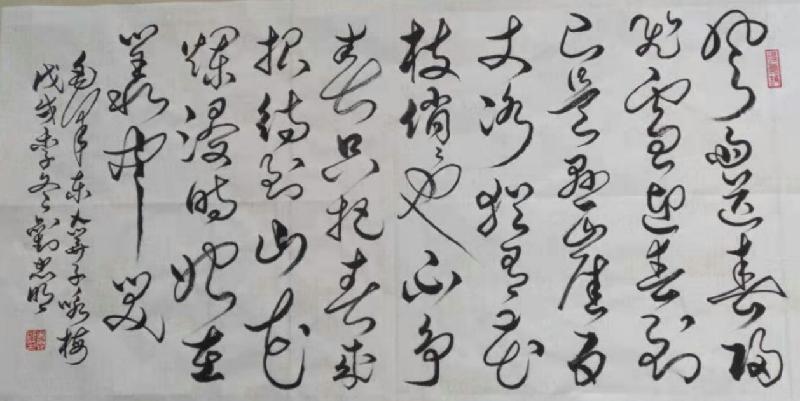 风雨送春归
飞雪迎春到
已是悬崖百
丈冰犹有花
枝俏々也不争
春只把春来
报待到山花
烂漫时她在
丛中笑
毛泽东卜算子咏梅
戊戌季冬刘忠明